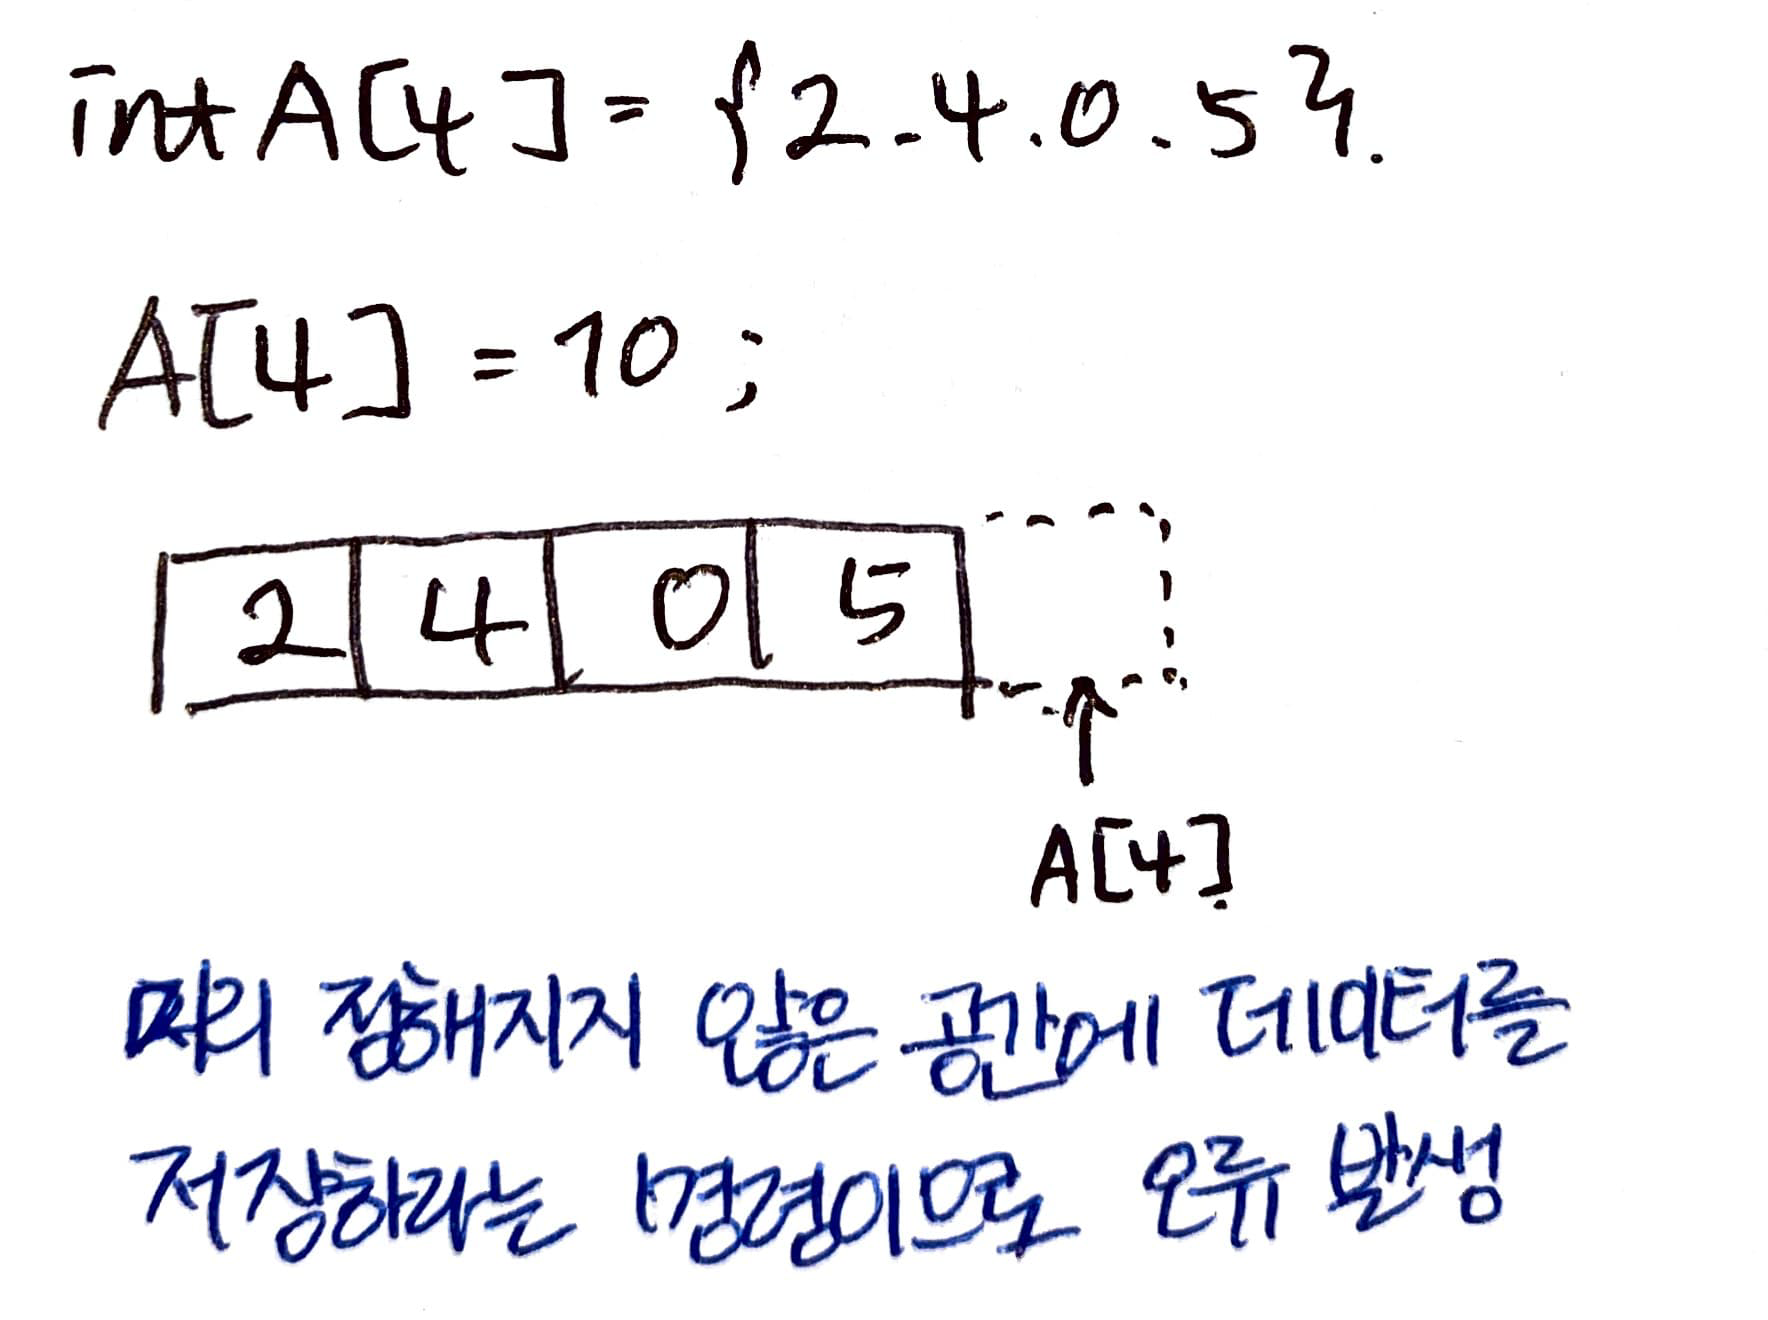 int A[4] = {2.4.0.5}.
A[4] = 10 ;
2 4 0 5
A[4]
미리 정해지지 않은 공간에 데이터를
저장하라는 명령이므로 오류 발생